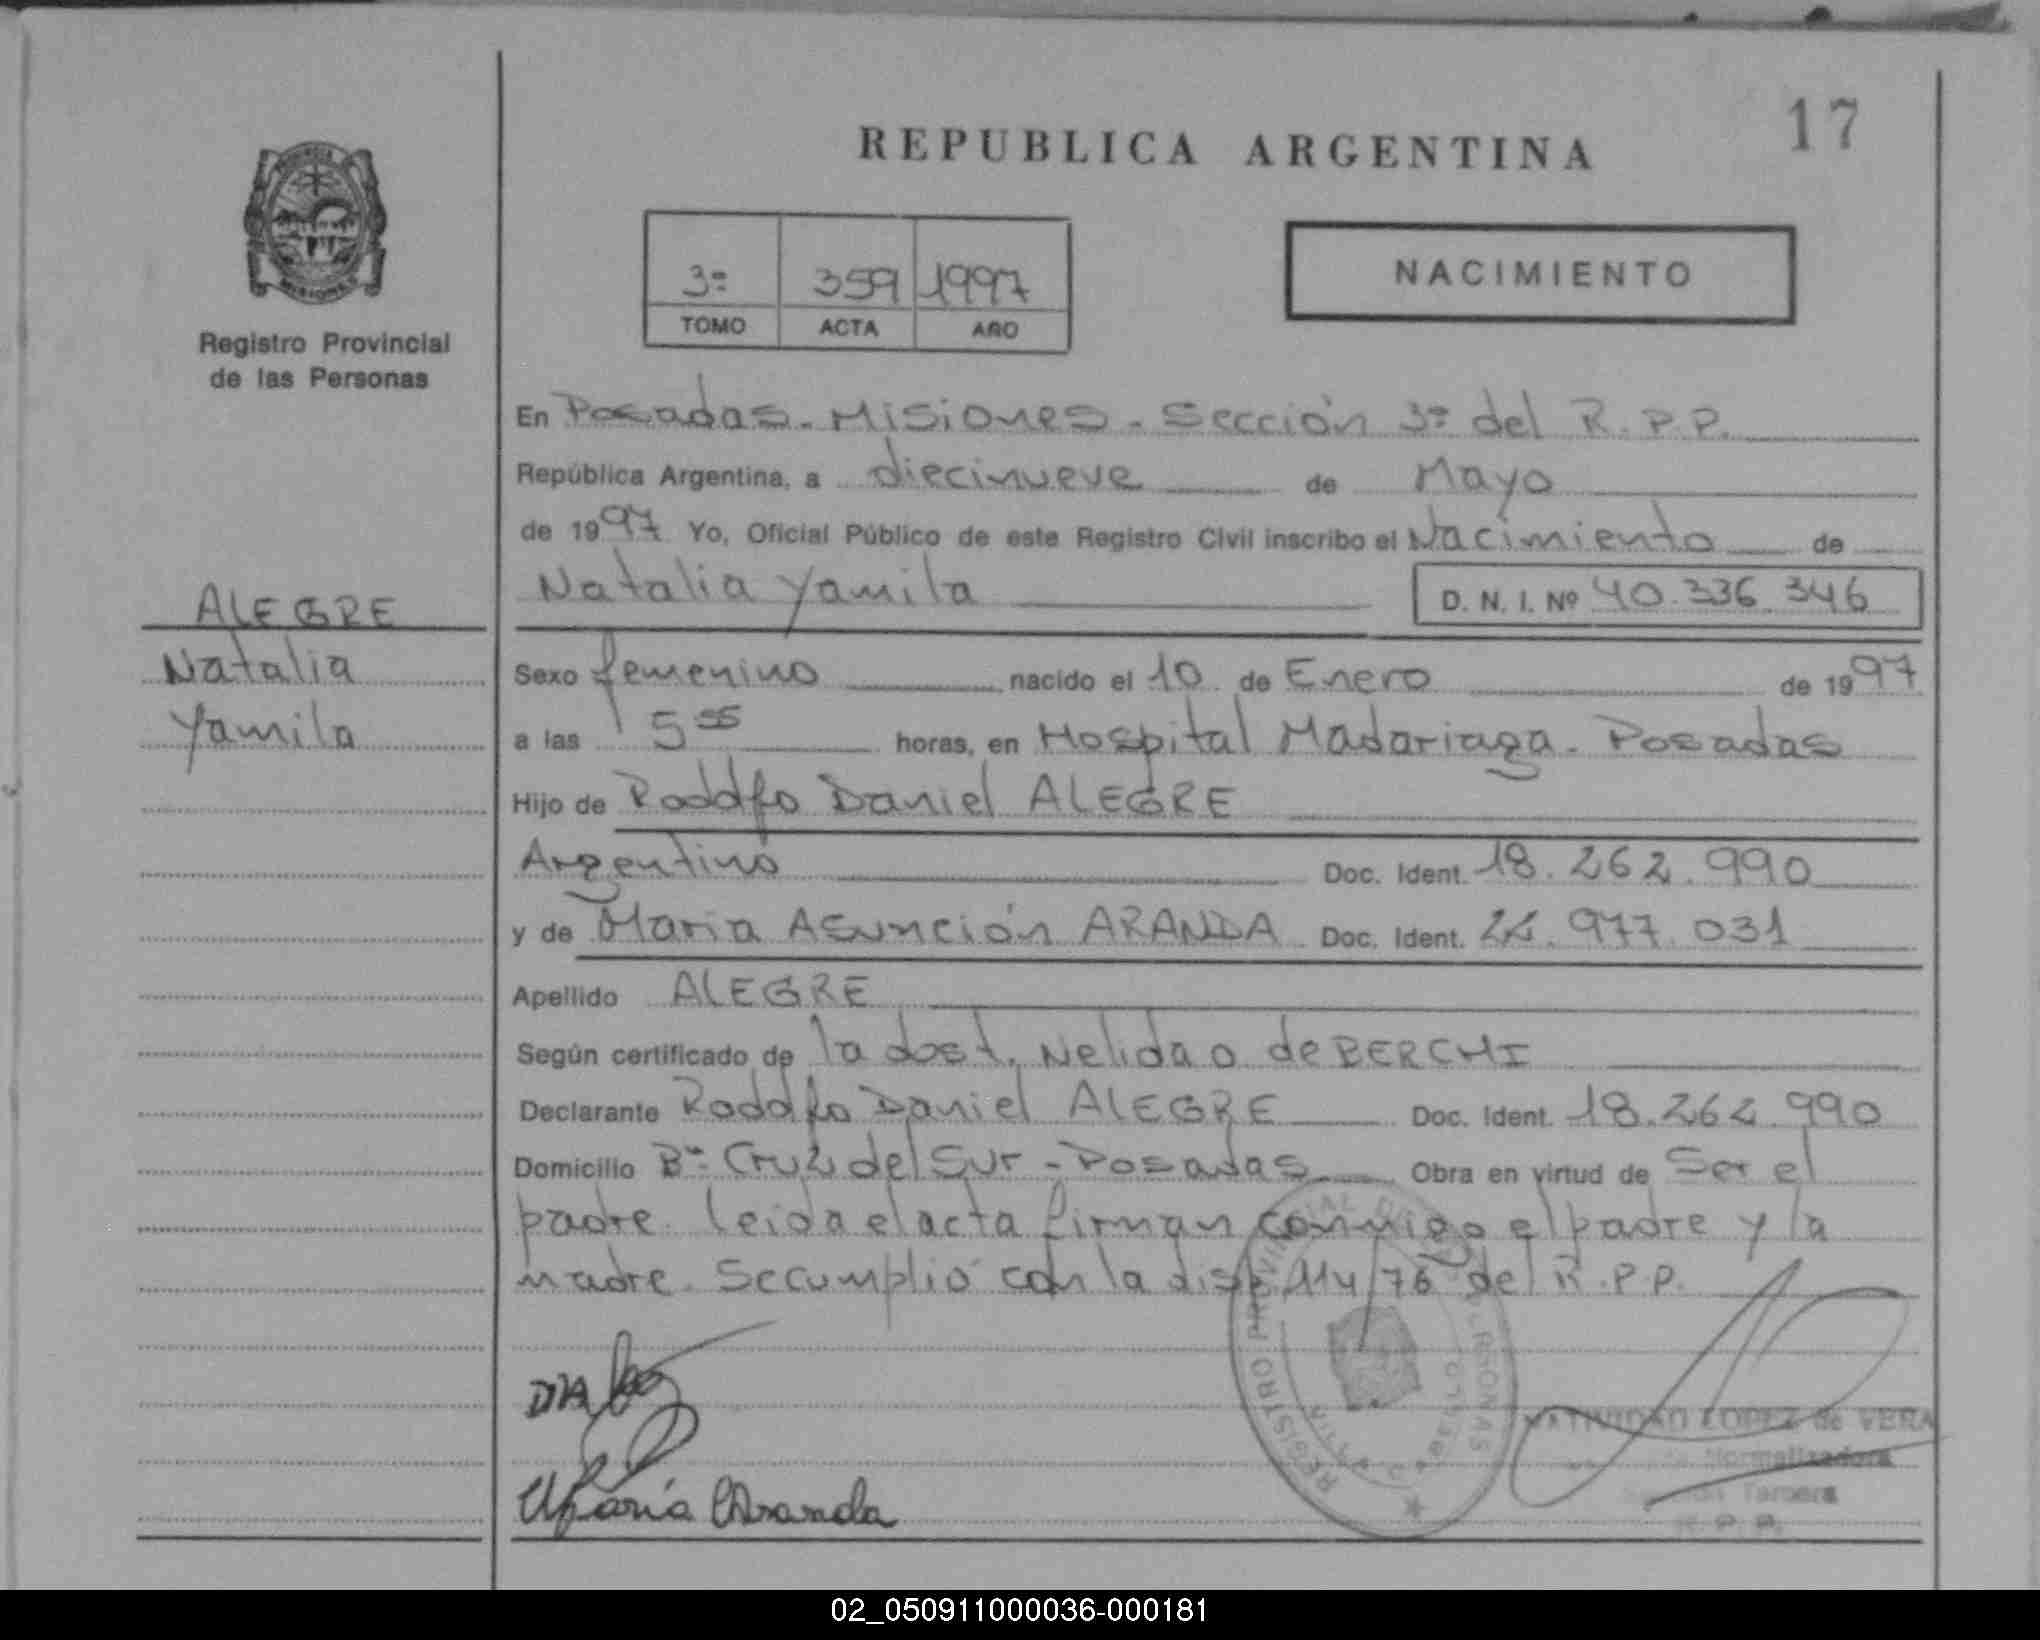 17
REPUBLICA ARGENTINA
MISIONES
Registro Provincial
de las Personas
3ª 359 1997
TOMO ACTA AÑO
NACIMIENTO
En Posadas - Misiones - Sección 3ª del R.P.P.
República Argentina, a diecinueve de Mayo
de 1997 Yo, Oficial Público de este Registro Civil inscribo el Nacimiento de
Natalia Yamila D. N. I. Nº 40.336.346
ALEGRE
Natalia
Yamila
Sexo femenino nacido el 10 de Enero de 1997
a las 5 55 horas, en Hospital Madariaga - Posadas
Hijo de Rodolfo Daniel ALEGRE
Argentino Doc. Ident. 18.262.990
y de Maria Asunción ARANDA Doc. Ident. 977.031
Apellido ALEGRE
Según certificado de la obst. Nelida O de BERCHI
Declarante Rodolfo Daniel ALEGRE Doc. Ident. 18.262.990
Domicilio Bº Cruz del Sur - Posadas Obra en virtud de Ser el
padre. leida el acta firman conmigo el padre y la
madre. Se cumplió con la disp. 114/76 del R.P.P.
REGISTRO PROVINCIAL DE LAS PERSONAS
POSADAS
NATIVIDAD LOPEZ de VERA
Normalizadora
Sección Tercera
R. P. P.
Maria Aranda
02_050911000036-000181